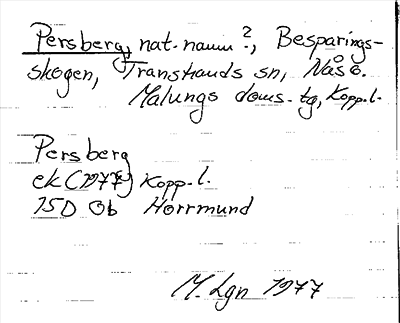 Persberg, nat.namn?, Besparings-
skogen, Transtrands sn, Nås o.
Malungs doms. tg, Kopp.l.
Persberg
ek (1977) Kopp.l.
15D 0b Horrmund
M. Lgn 1977